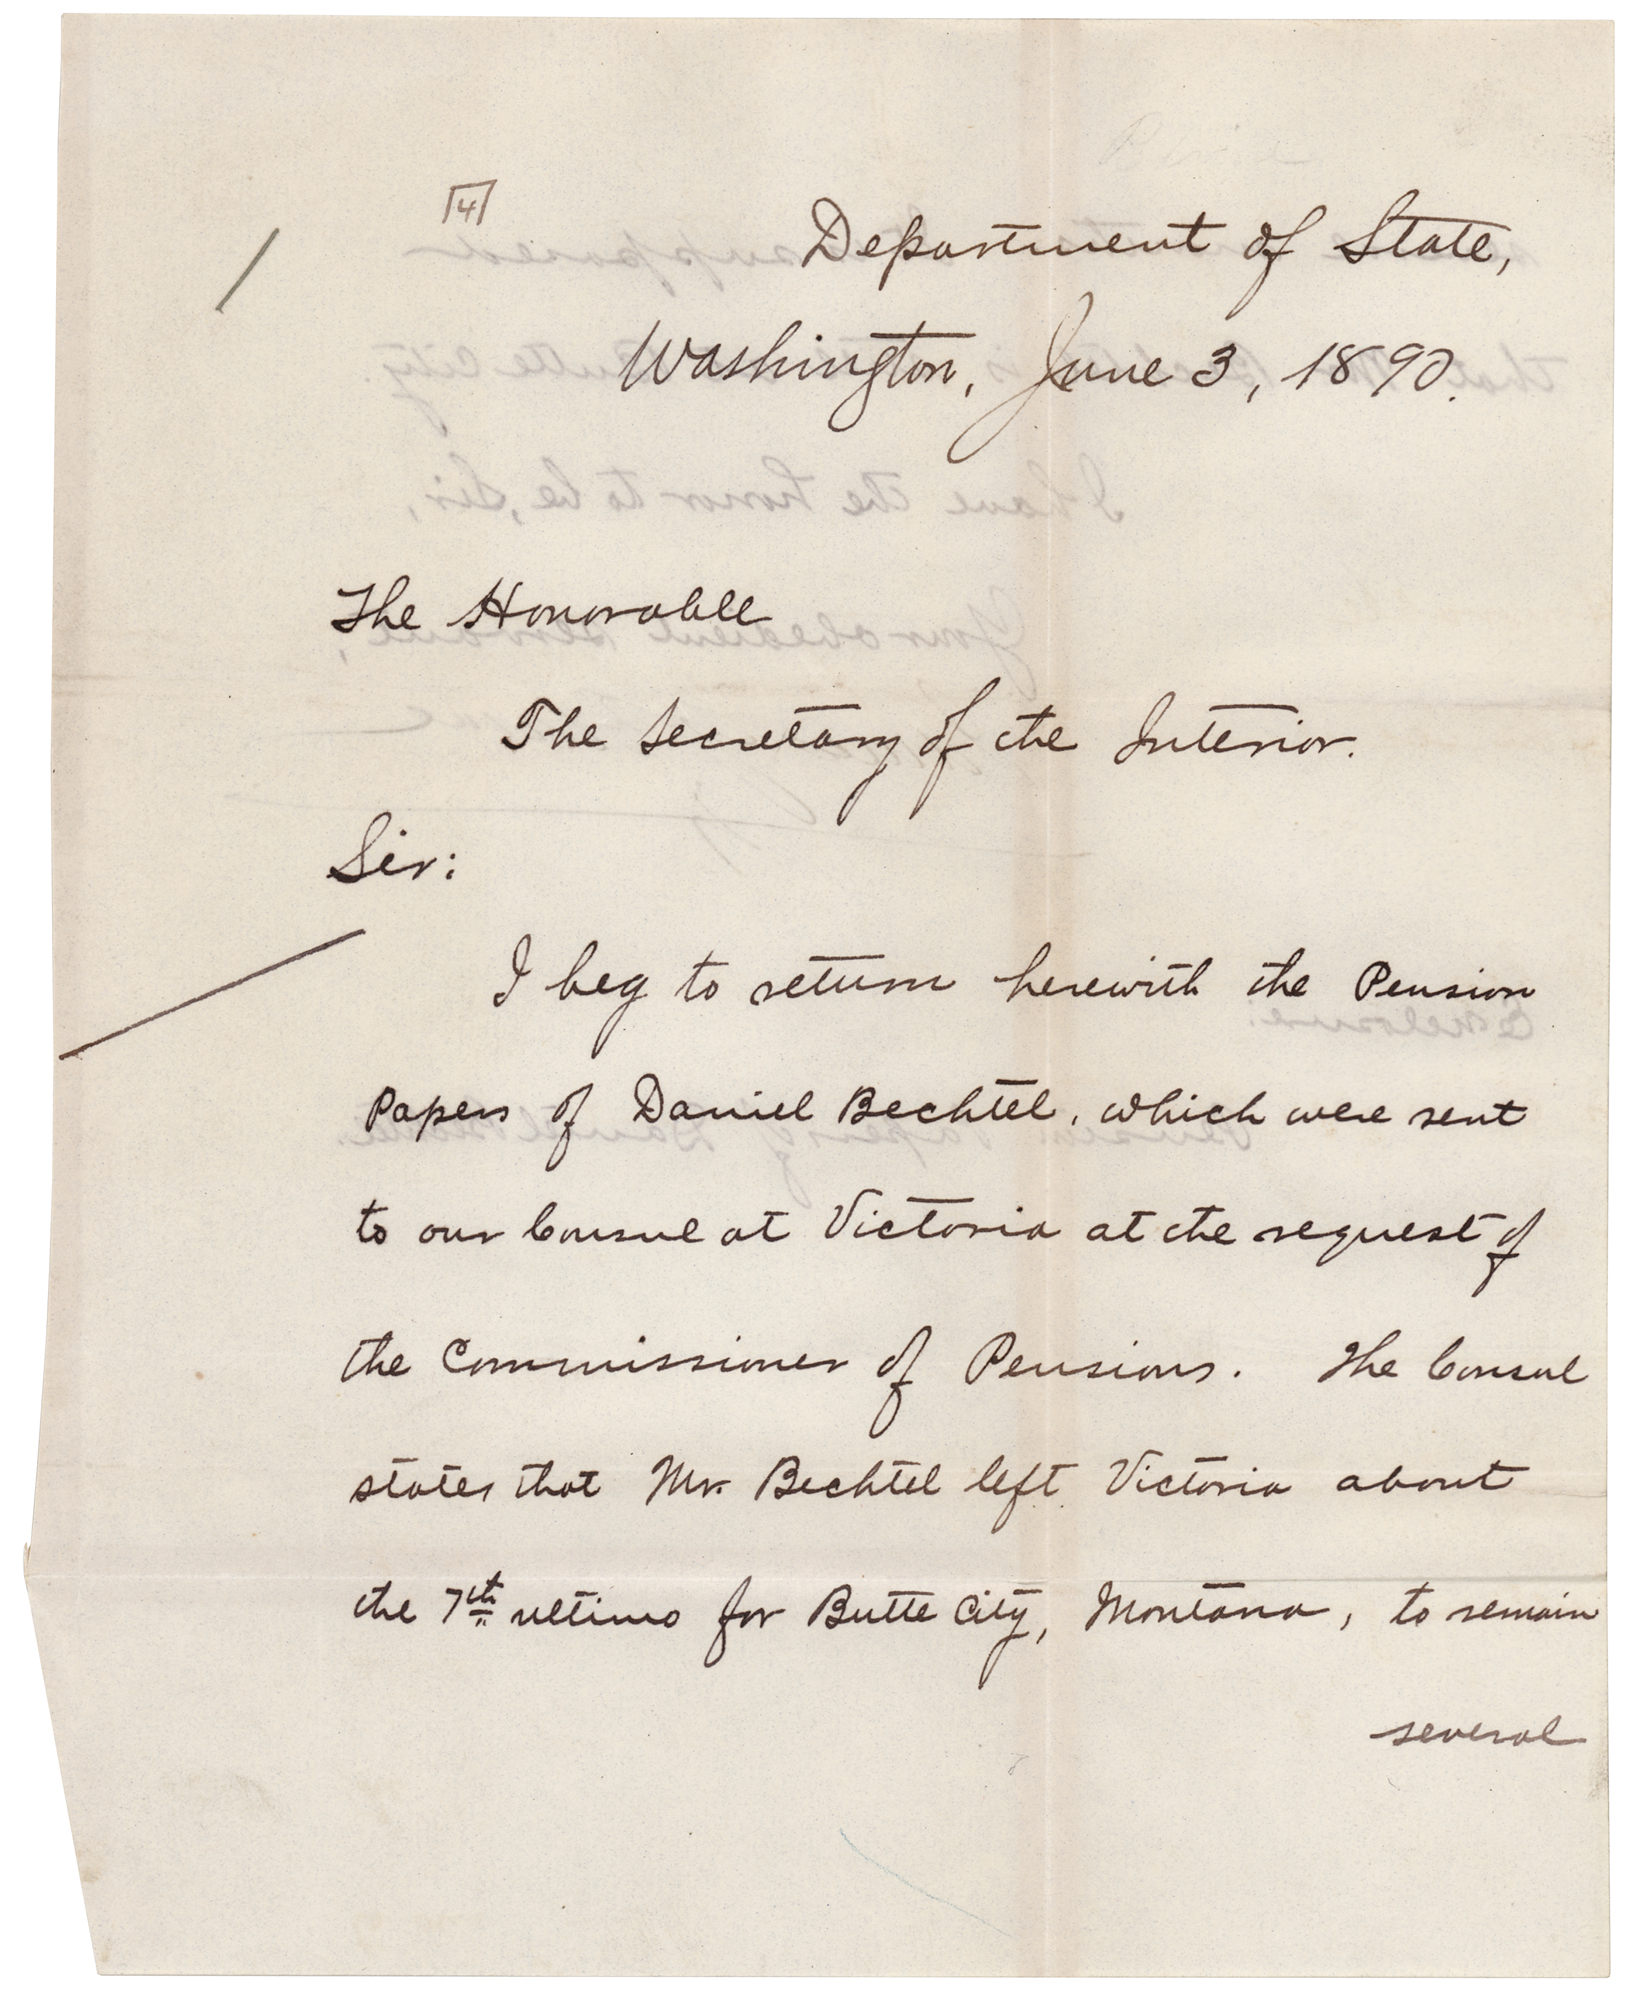 4
Department of State,
Washington, June 3, 1890.
The Honorable
The Secretary of the Interior.
Sir:
I beg to return herewith the Pension
Papers of Daniel Bechtel, which were sent
to our Consul at Victoria at the request of
the Commissioner of Pensions. The Consul
states that Mr. Bechtel left Victoria about
the 7th ultimo for Butte City, Montana, to remain
several